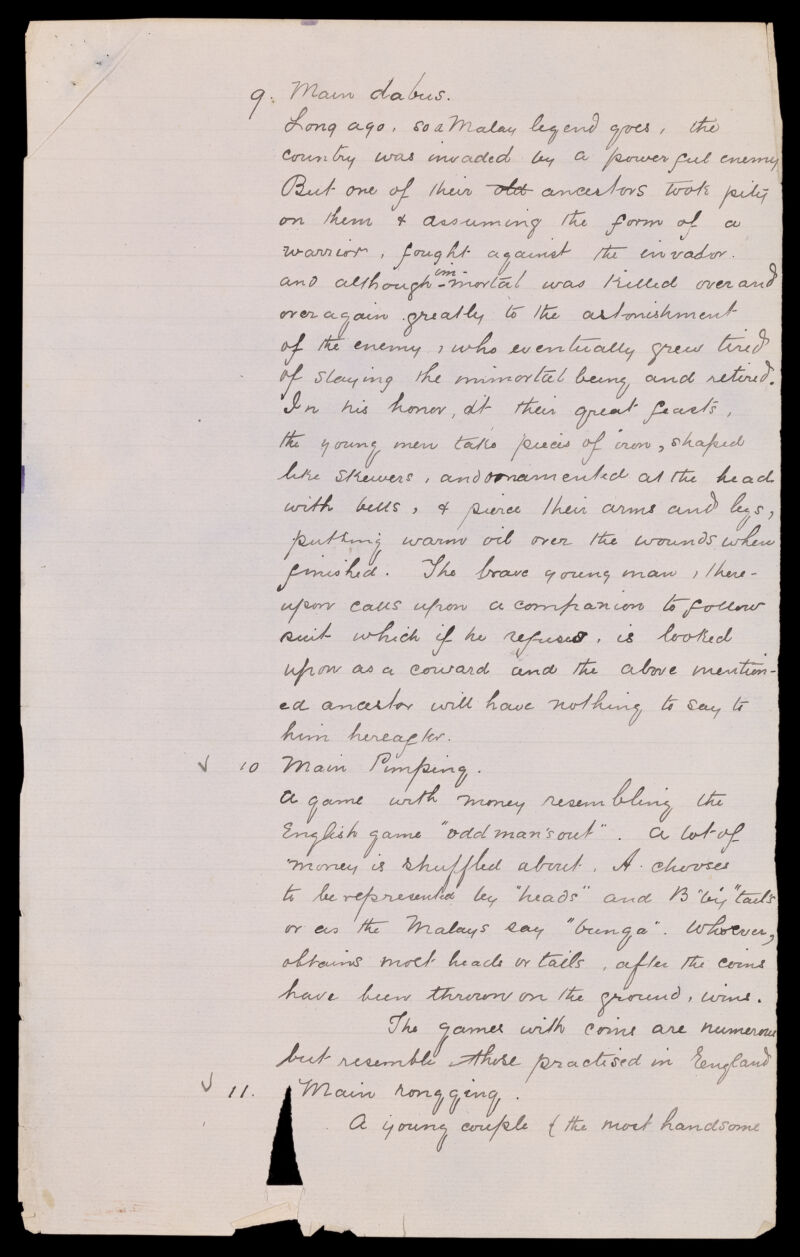 9. Main dabus.
Long ago, so a Malay legend goes, the
country was invaded by a powerful enemy
But one of their old ancestors took pity
on them & assuming the form of a
warrior, fought against the invador.
and although im-mortal was killed over and
over again greatly to the astonishment
of the enemy, who eventually grew tired
of slaying the immortal being and retired.
In his honor, at their great feasts,
the young men take pieces of iron, shaped
like skewers, and ornamented at the head
with bells, & pierce their arms and legs,
putting warm oil over the wounds when
finished. The brave young man, there-
upon calls upon a companion to follow
suit which if he refuses, is looked
upon as a coward and the above mention-
ed ancestor will have nothing to say to
him hereafter.
✓ 10 Main Pimping.
A game with money resembling the
English game "odd man's out". A lot of
money is shuffled about. A. chooses
to be represented by "heads" and B "by" tails
or as the Malays say "bunga". Whoever,
obtains most heads or tails, after the coins
have been thrown on the ground, wins.
The games with coins are numerous
but resemble those practised in England
✓ 11. Main rongging.
A young couple (the most handsome